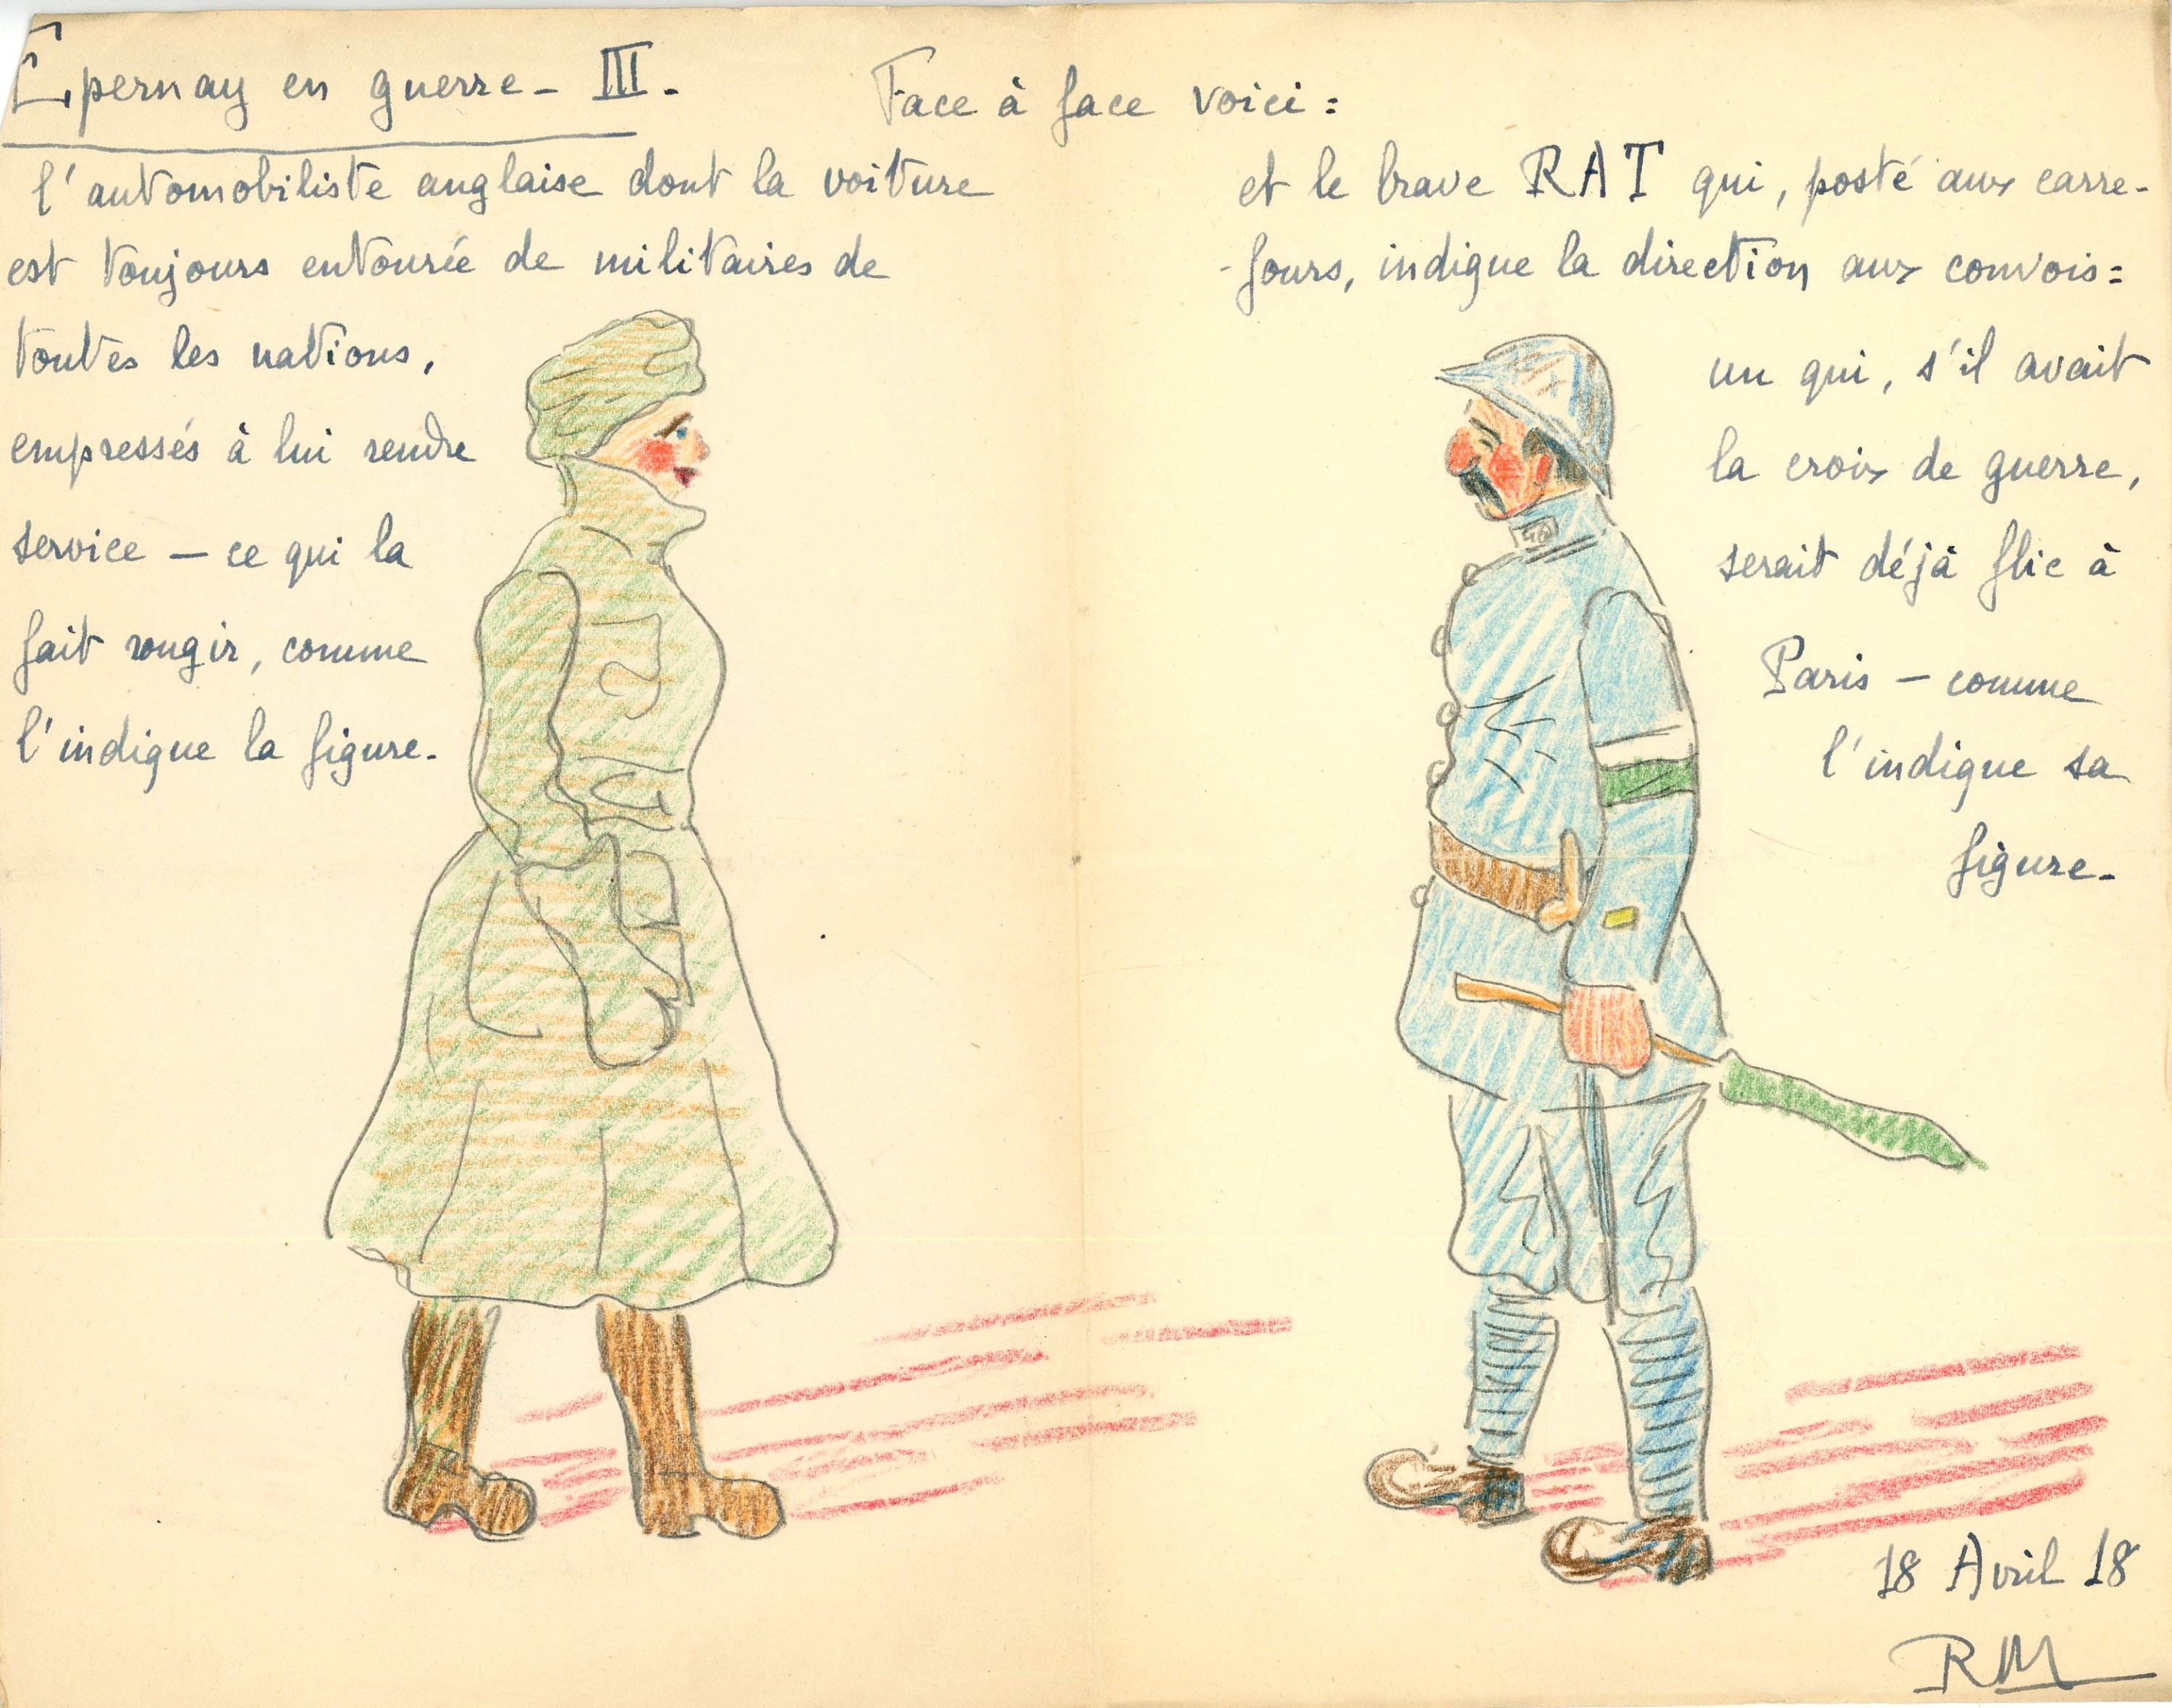 Epernay en guerre - III.
Face à face voici :
l'automobiliste anglaise dont la voiture
est toujours entourée de militaires de
toutes les nations,
empressés à lui rendre
service — ce qui la
fait rougir, comme
l'indique la figure.
et le brave RAT qui, posté aux carre-
-fours, indique la direction aux convois :
un qui, s'il avait
la croix de guerre,
serait déjà flic à
Paris — comme
l'indique sa
figure.
18 Avril 18
RM